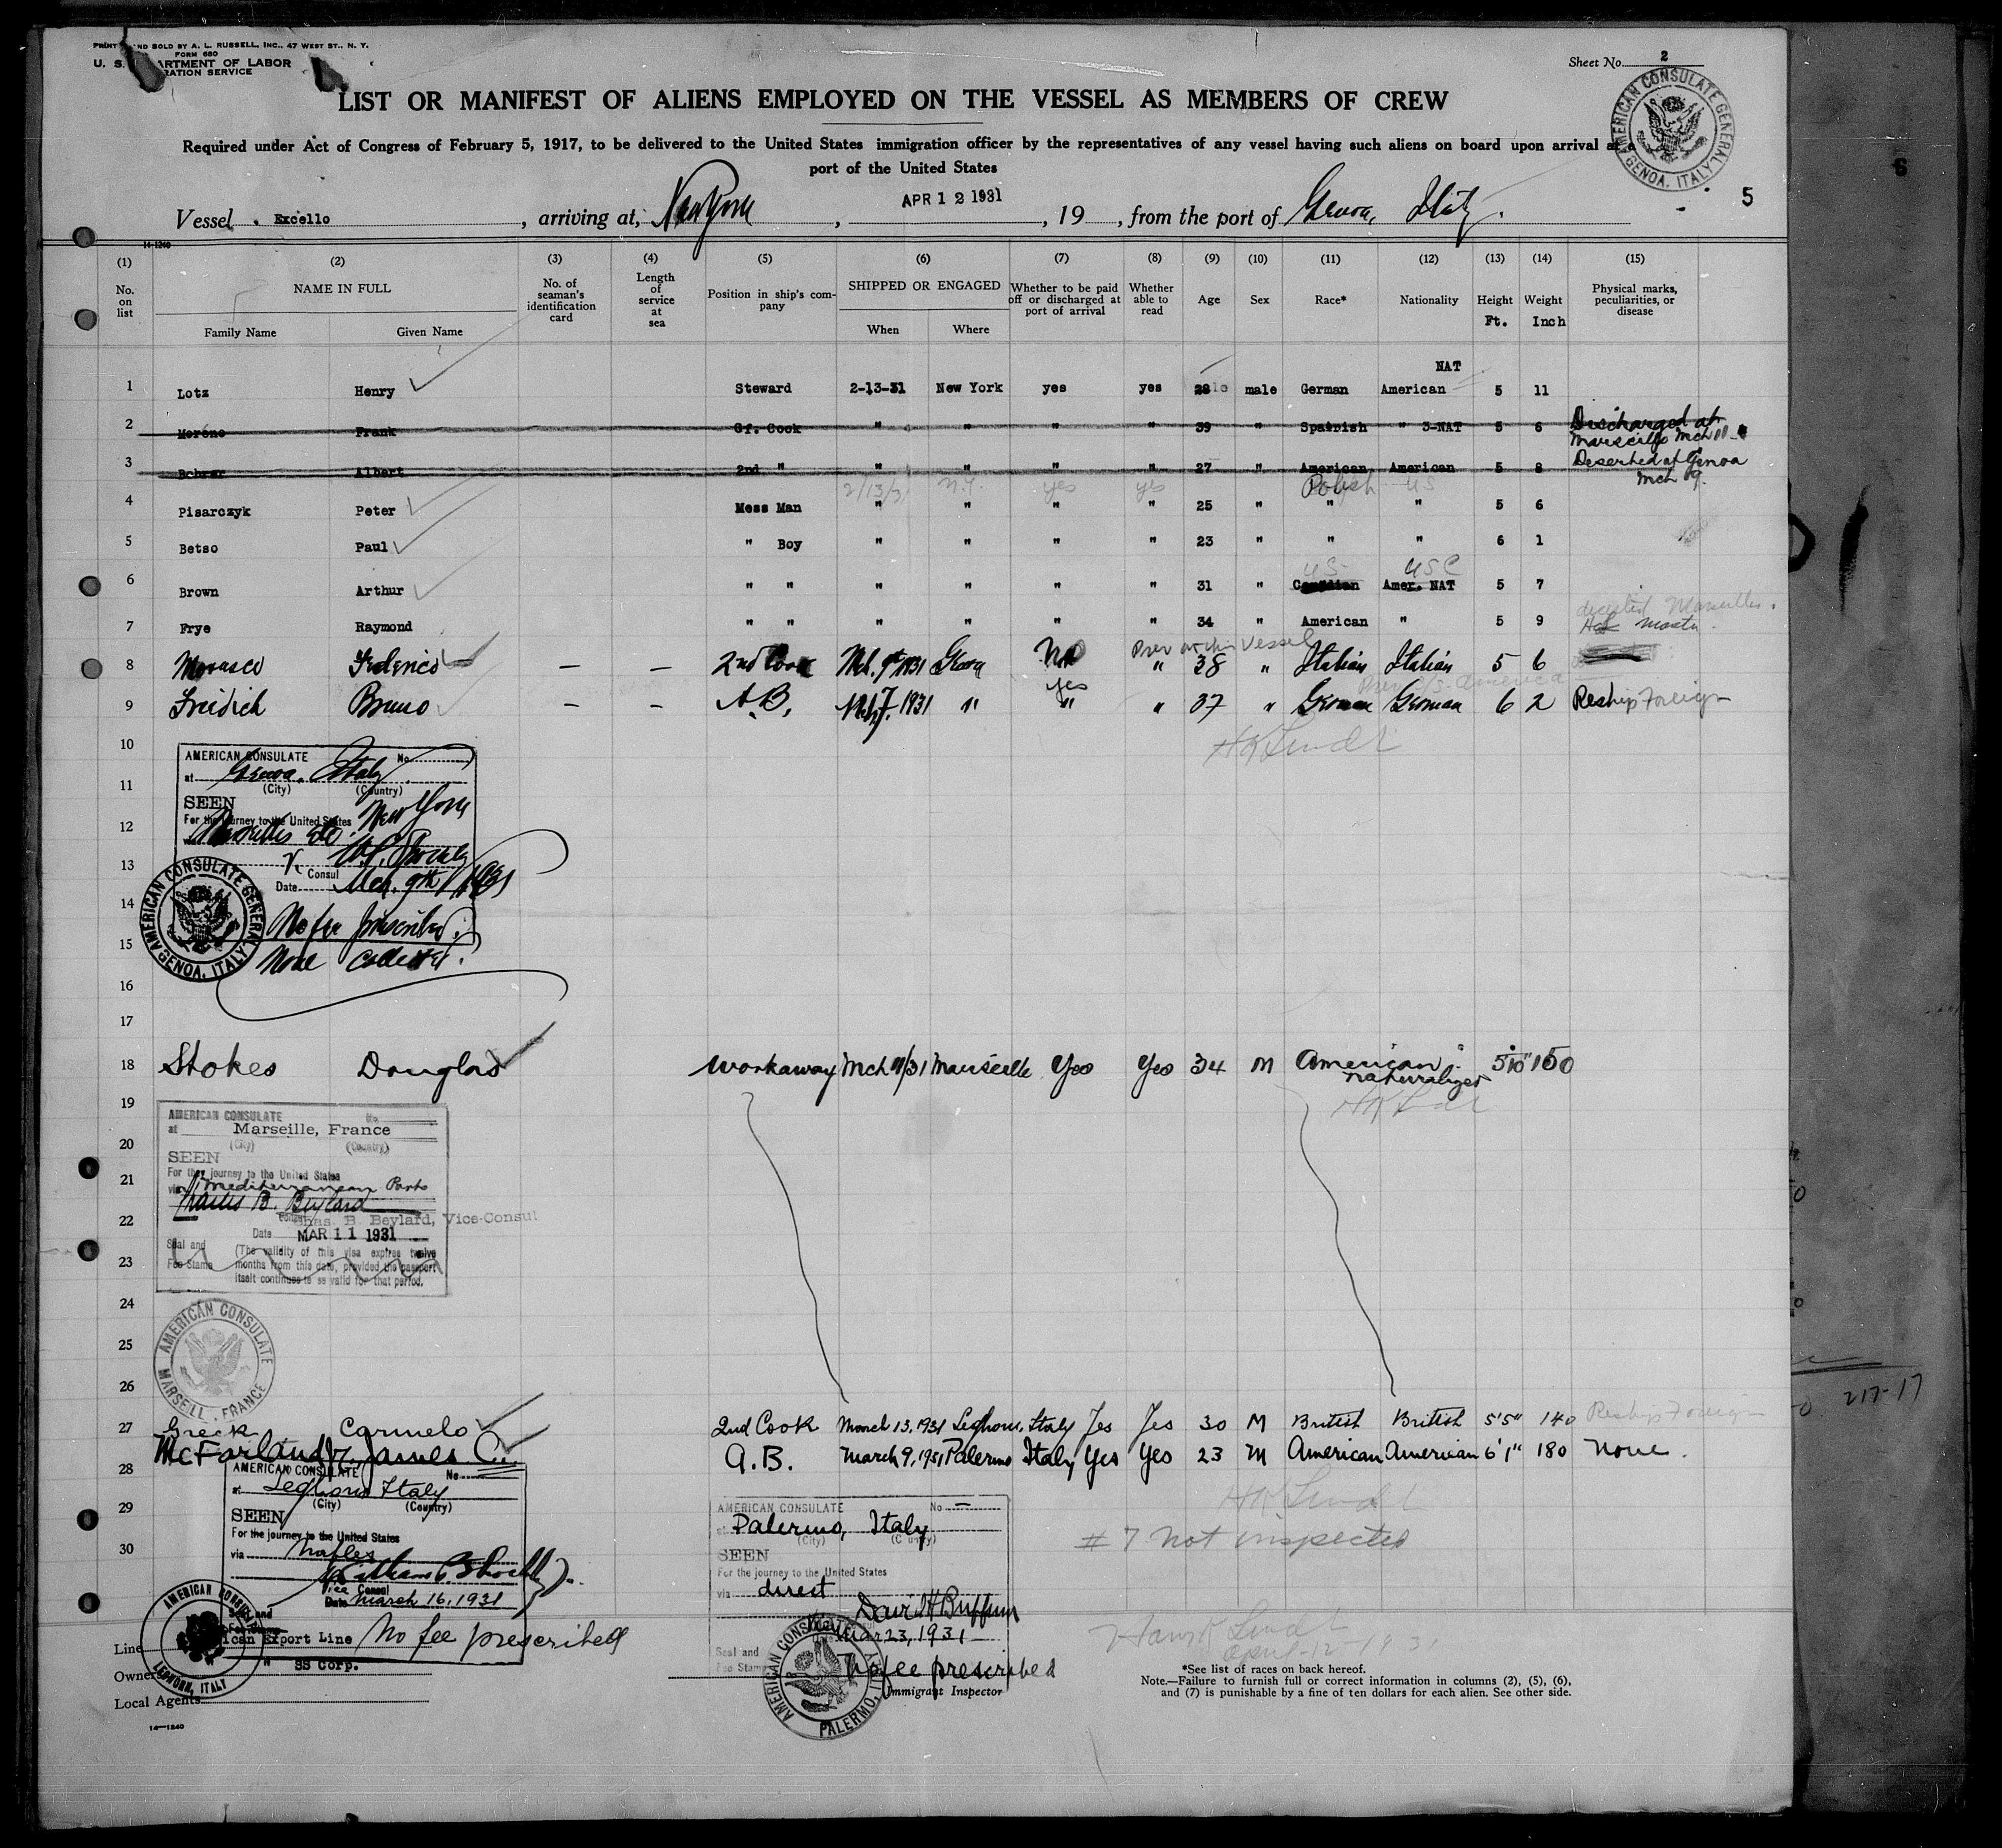 PRINT ND SOLD BY A. L. RUSSELL, INC., 47 WEST ST., N. Y.
FORM 680
U. S. ARTMENT OF LABOR
RATION SERVICE
Sheet No. 2
LIST OR MANIFEST OF ALIENS EMPLOYED ON THE VESSEL AS MEMBERS OF CREW
AMERICAN CONSULATE GENERAL GENOA, ITALY
Required under Act of Congress of February 5, 1917, to be delivered to the United States immigration officer by the representatives of any vessel having such aliens on board upon arrival at a
port of the United States
5
Vessel Excello, arriving at, New York, APR 12 1931, 19 , from the port of Genoa, Italy.
14-1240
(1) (2) (3) (4) (5) (6) (7) (8) (9) (10) (11) (12) (13) (14) (15)
No. on list
NAME IN FULL
Family Name Given Name
No. of seaman's identification card
Length of service at sea
Position in ship's company
SHIPPED OR ENGAGED
When Where
Whether to be paid off or discharged at port of arrival
Whether able to read
Age
Sex
Race*
Nationality
Height Ft.
Weight Inch
Physical marks, peculiarities, or disease
1 Lotz Henry Steward 2-13-31 New York yes yes 28 male German American NAT 5 11
2 Moreno Frank Cf. Cook " " " " 39 " Spanish " 3-NAT 5 6 Discharged at Marseille Mch 11
3 Albert 2nd " " " " " 27 " American American 5 8 Deserted at Genoa Mch 9.
2/13/31 N.Y. yes yes Polish US
4 Pisarczyk Peter Mess Man " " " " 25 " " " 5 6
5 Betso Paul " Boy " " " " 23 " " " 6 1
US USC
6 Brown Arthur " " " " " " 31 " Canadian Amer. NAT 5 7
7 Frye Raymond " " " " " " 34 " American " 5 9 deserted Marseilles.
8 Federico — — 2nd Cook Mch. 9th 1931 Genoa No " 38 " Italian Italian 5 6
yes
9 Freidich Bruno — — A.B. Mch 7. 1931 " " " 37 " German German 6 2 Reship Foreign
10
11
12
13
14
15
16
17
AMERICAN CONSULATE No.
at Genoa, Italy
(City) (Country)
SEEN
For the journey to the United States
New York
Consul
Date Mch. 9th 1931
No fee prescribed.
None collected.
AMERICAN CONSULATE GENERAL GENOA, ITALY
18 Stokes Douglas Workaway Mch 11/31 Marseille Yes Yes 34 M American naturalized 5'10" 150
19
20
21
22
23
24
25
26
AMERICAN CONSULATE No
at Marseille, France
(City) (Country)
SEEN
For the journey to the United States
via Mediterranean Ports
Charles B. Beylard
Chas. B. Beylard, Vice-Consul
Date MAR 11 1931
Seal and Fee Stamp
(The validity of this visa expires twelve months from this date, provided the passport itself continues to be valid for that period.
AMERICAN CONSULATE MARSEILL , FRANCE
27 Greek Carmelo 2nd Cook March 13, 1931 Leghorn, Italy Yes Yes 30 M British British 5'5" 140 Reship Foreign
28 McFarland, James C. A.B. March 9, 1931 Palermo Italy Yes Yes 23 M American American 6'1" 180 None.
29
30
AMERICAN CONSULATE No
at Leghorn Italy
(City) (Country)
SEEN
For the journey to the United States
via Naples
Vice Consul
Date March 16, 1931
No fee prescribed
AMERICAN CONSULATE LEGHORN, ITALY
AMERICAN CONSULATE No. —
at Palermo, Italy
(City) (Country)
SEEN
For the journey to the United States
via direct
David H Buffum
Mar 23, 1931
Seal and Fee Stamp
No fee prescribed
AMERICAN CONSULATE PALERMO, ITALY
# 7 not inspected
April-12-1931
Line ican Export Line
Owners " SS Corp.
Local Agents
Immigrant Inspector
*See list of races on back hereof.
Note.—Failure to furnish full or correct information in columns (2), (5), (6),
and (7) is punishable by a fine of ten dollars for each alien. See other side.
14—1240
217-17